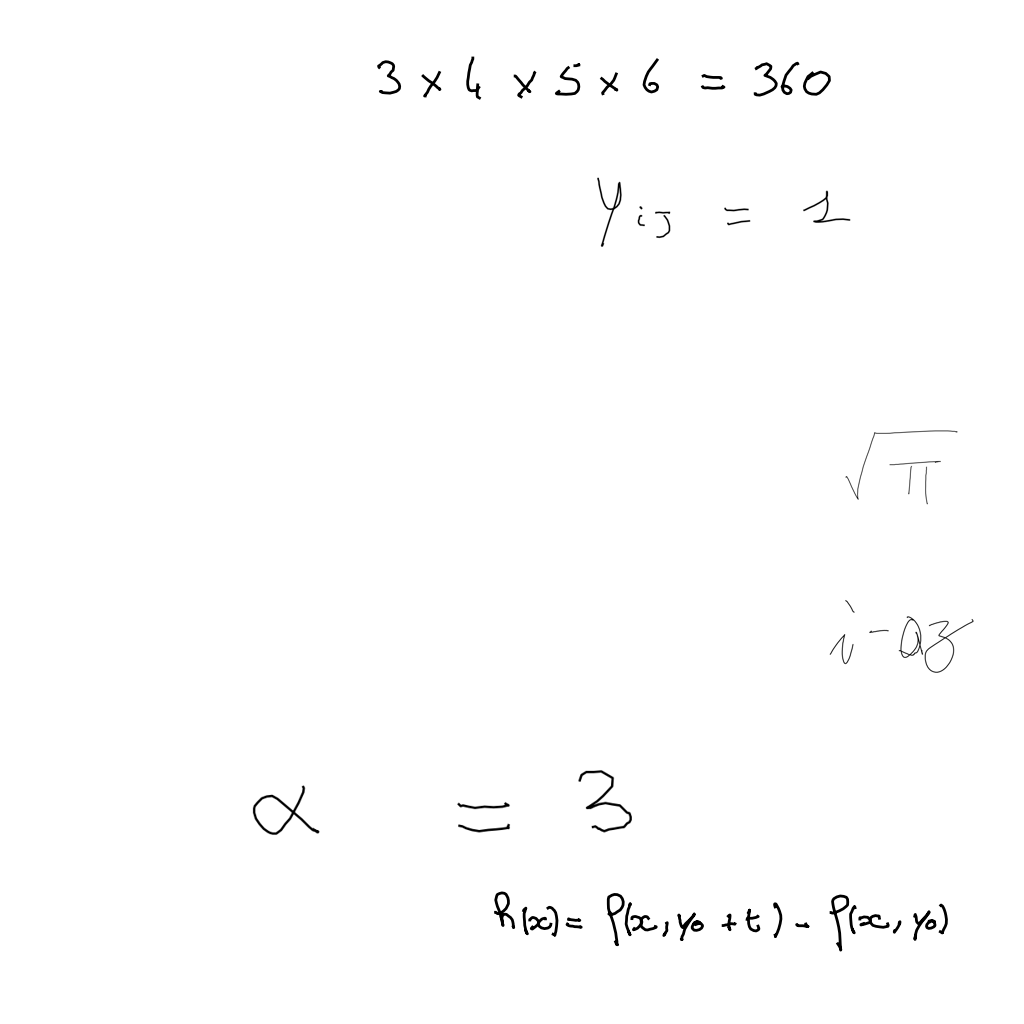 3 × 4 × 5 × 6 = 360
Y_{ij} = 1
√π
i - az
α = 3
h(x) = f(x, y₀ + t) - f(x, y₀)